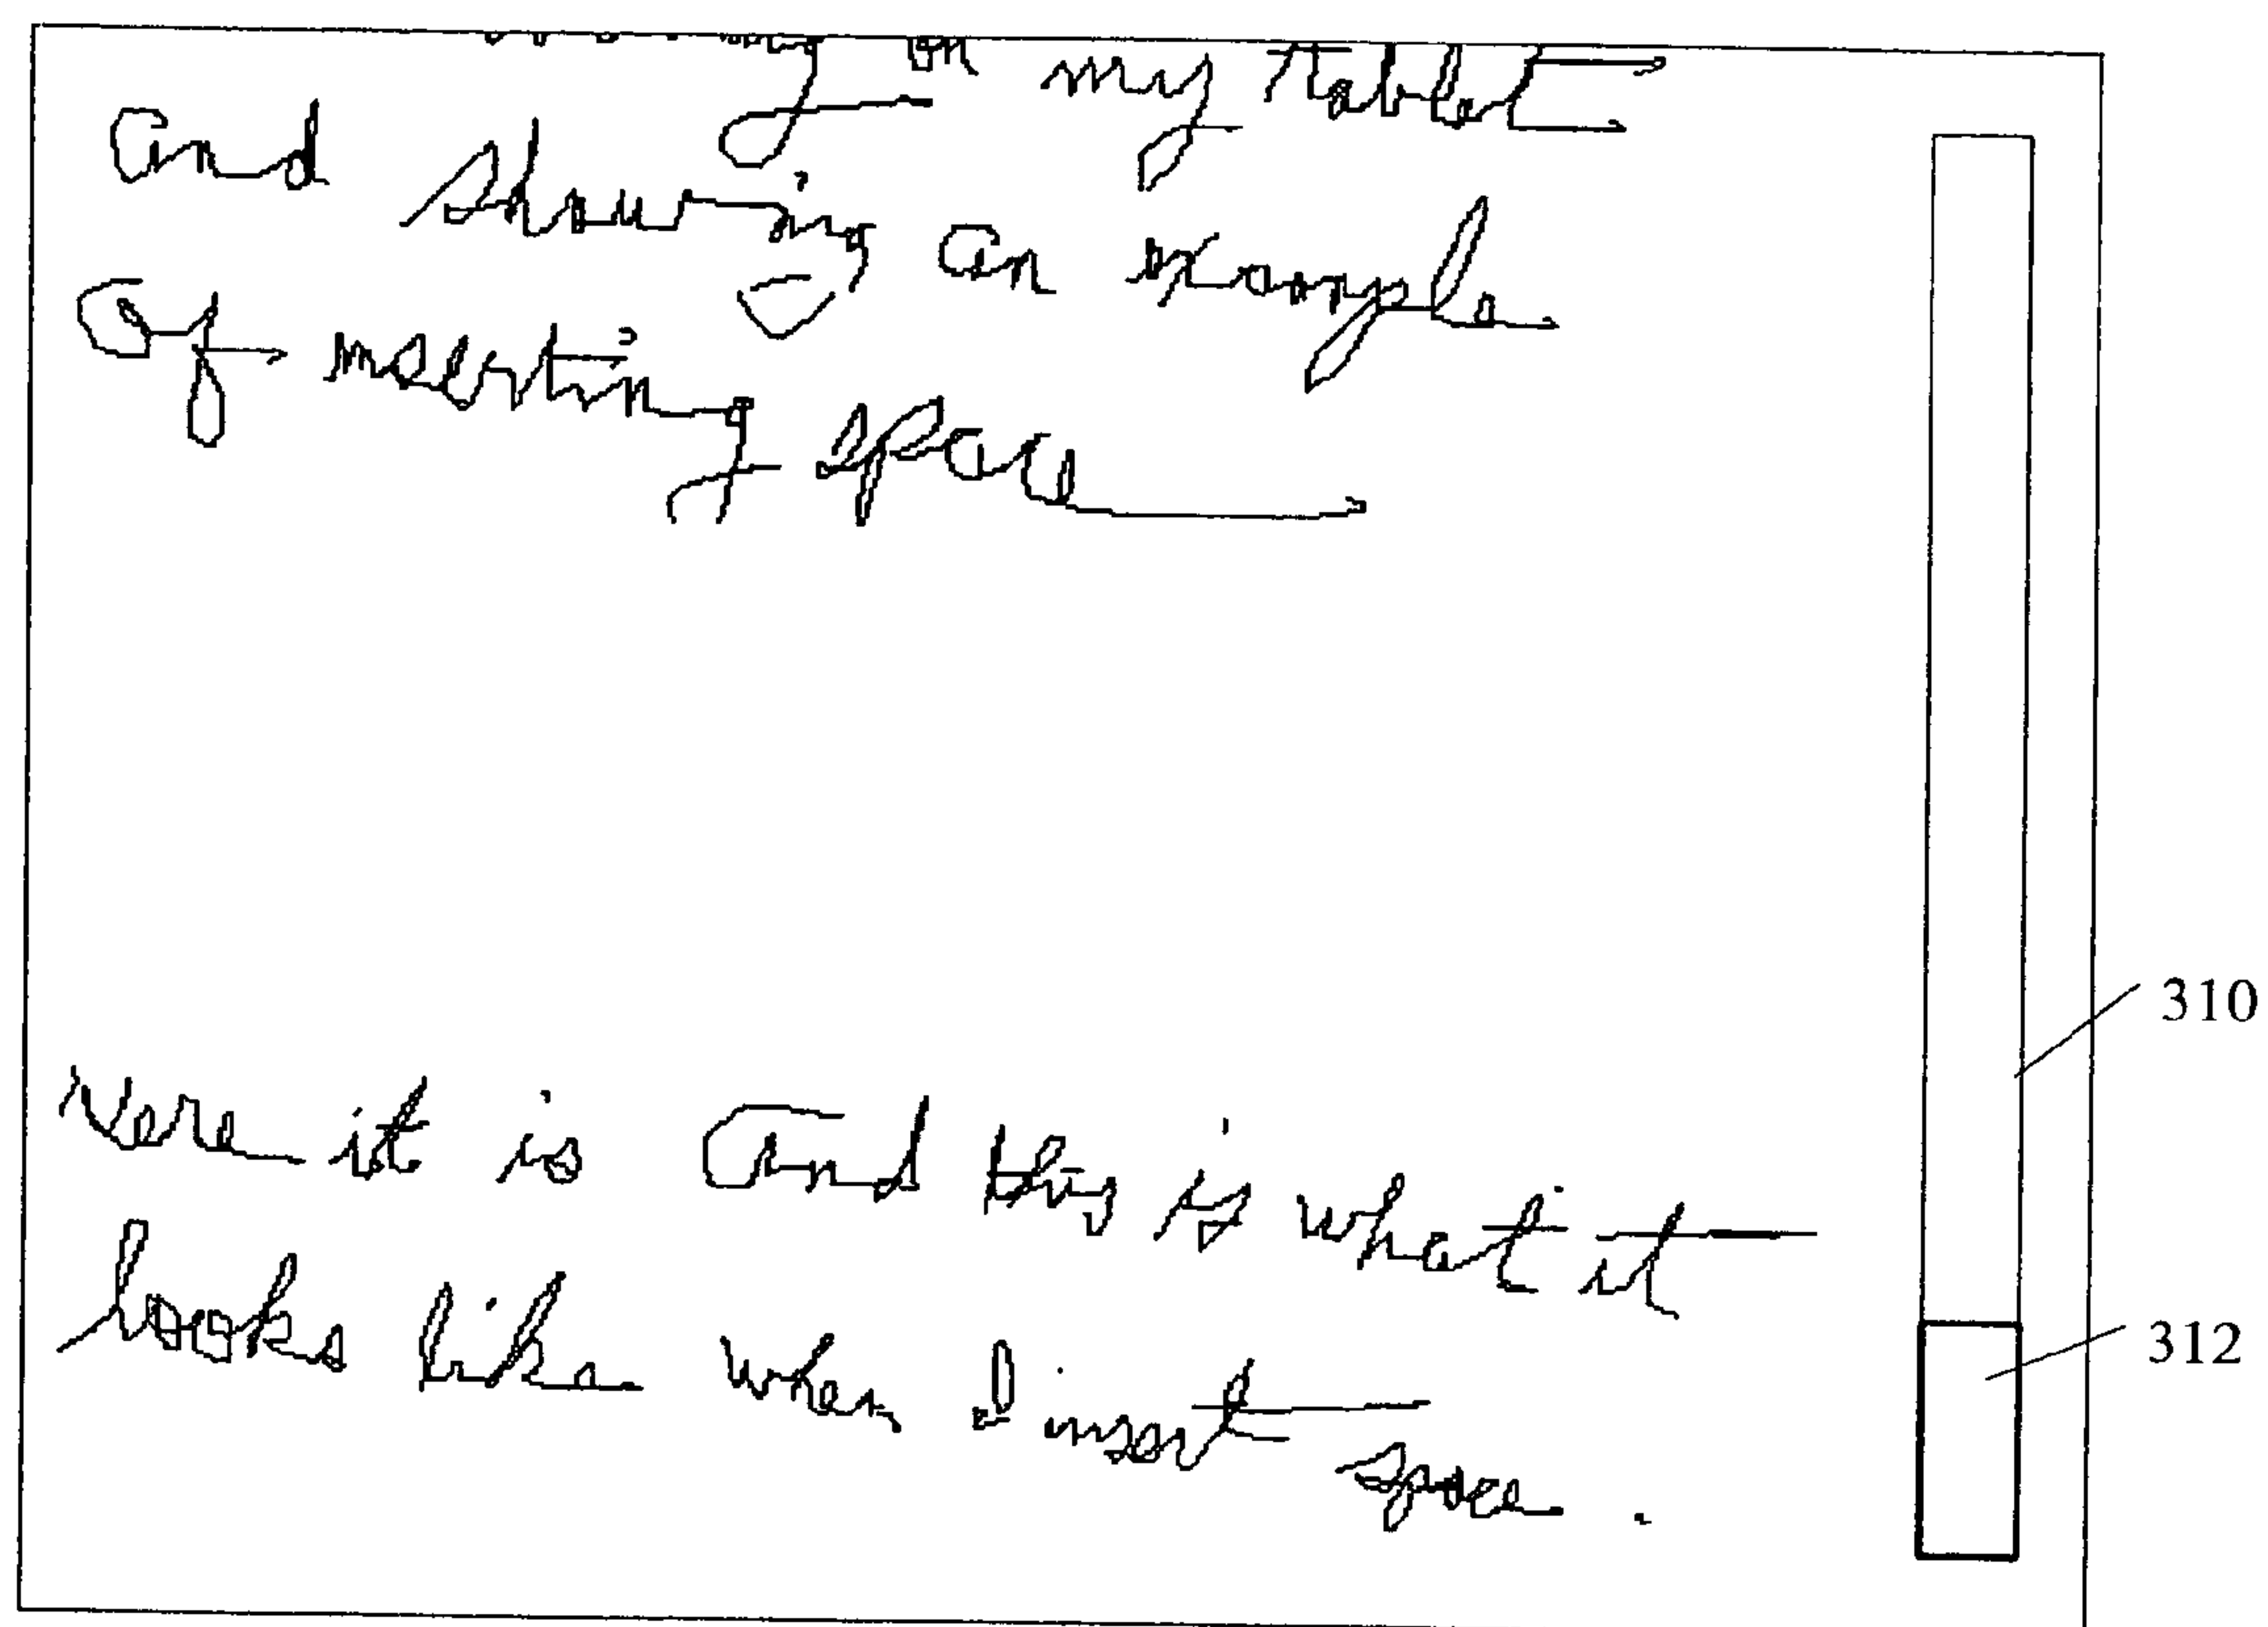 on my tablet
and showing an example
of inserting space
310
Here it is and this is what it
312
looks like when I insert space.